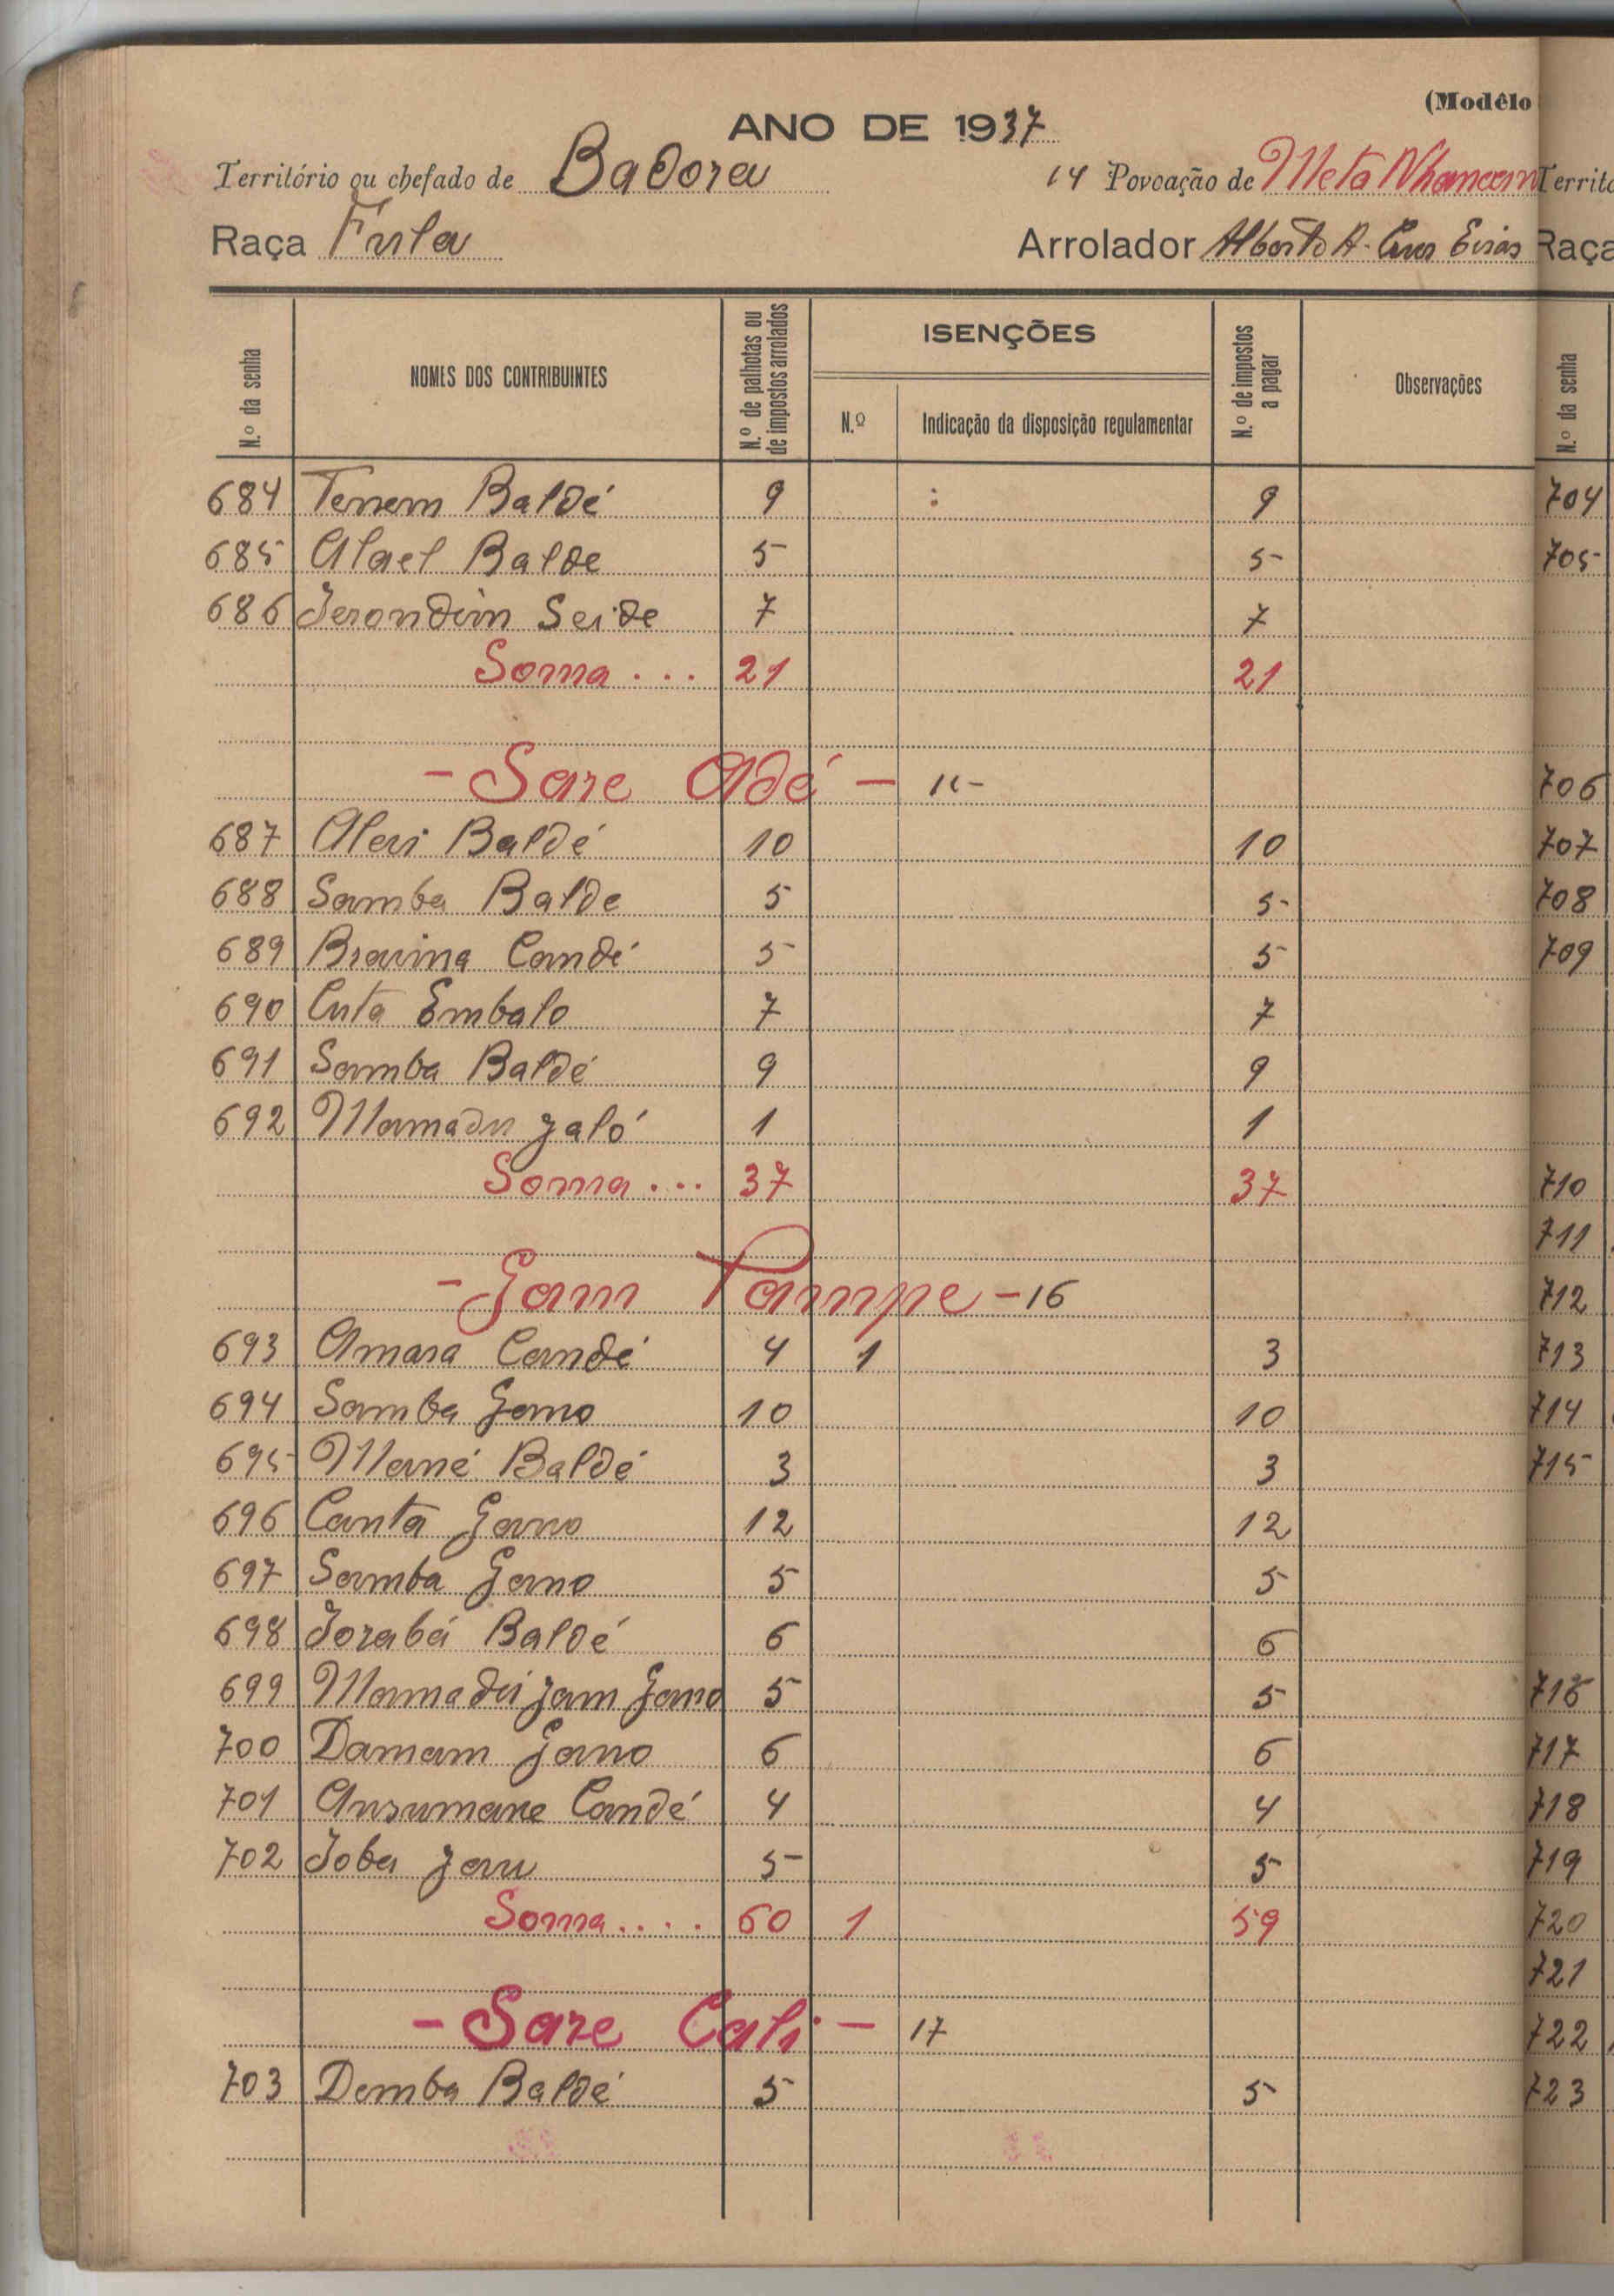 (Modêlo
ANO DE 1937
Território ou chefado de Badora 14 Povoação de Meta Nhamcam
Raça Fula Arrolador Alberto A.
N.º da senha NOMES DOS CONTRIBUINTES N.º de palhotas ou de impostos arrolados ISENÇÕES N.º Indicação da disposição regulamentar N.º de impostos a pagar Observações
684 Tenem Baldé 9 : 9
685 Alael Balde 5 5
686 Jerondim Seide 7 7
Soma ... 21 21
- Sare Adé - 15
687 Aleri Baldé 10 10
688 Samba Balde 5 5
689 Braima Candé 5 5
690 Cuta Embalo 7 7
691 Samba Baldé 9 9
692 Mamadu Jaló 1 1
Soma ... 37 37
- Gam Pampe - 16
693 Amara Candé 4 1 3
694 Samba Gano 10 10
695 Mané Baldé 3 3
696 Canta Gano 12 12
697 Samba Gano 5 5
698 Jorabá Baldé 6 6
699 Mamadú Jam Gano 5 5
700 Damam Gano 6 6
701 Ansumane Candé 4 4
702 Joba Jau 5 5
Soma .... 60 1 59
- Sare Cali - 17
703 Demba Baldé 5 5
Territó
Raça
N.º da senha
704
705
706
707
708
709
710
711
712
713
714
715
716
717
718
719
720
721
722
723